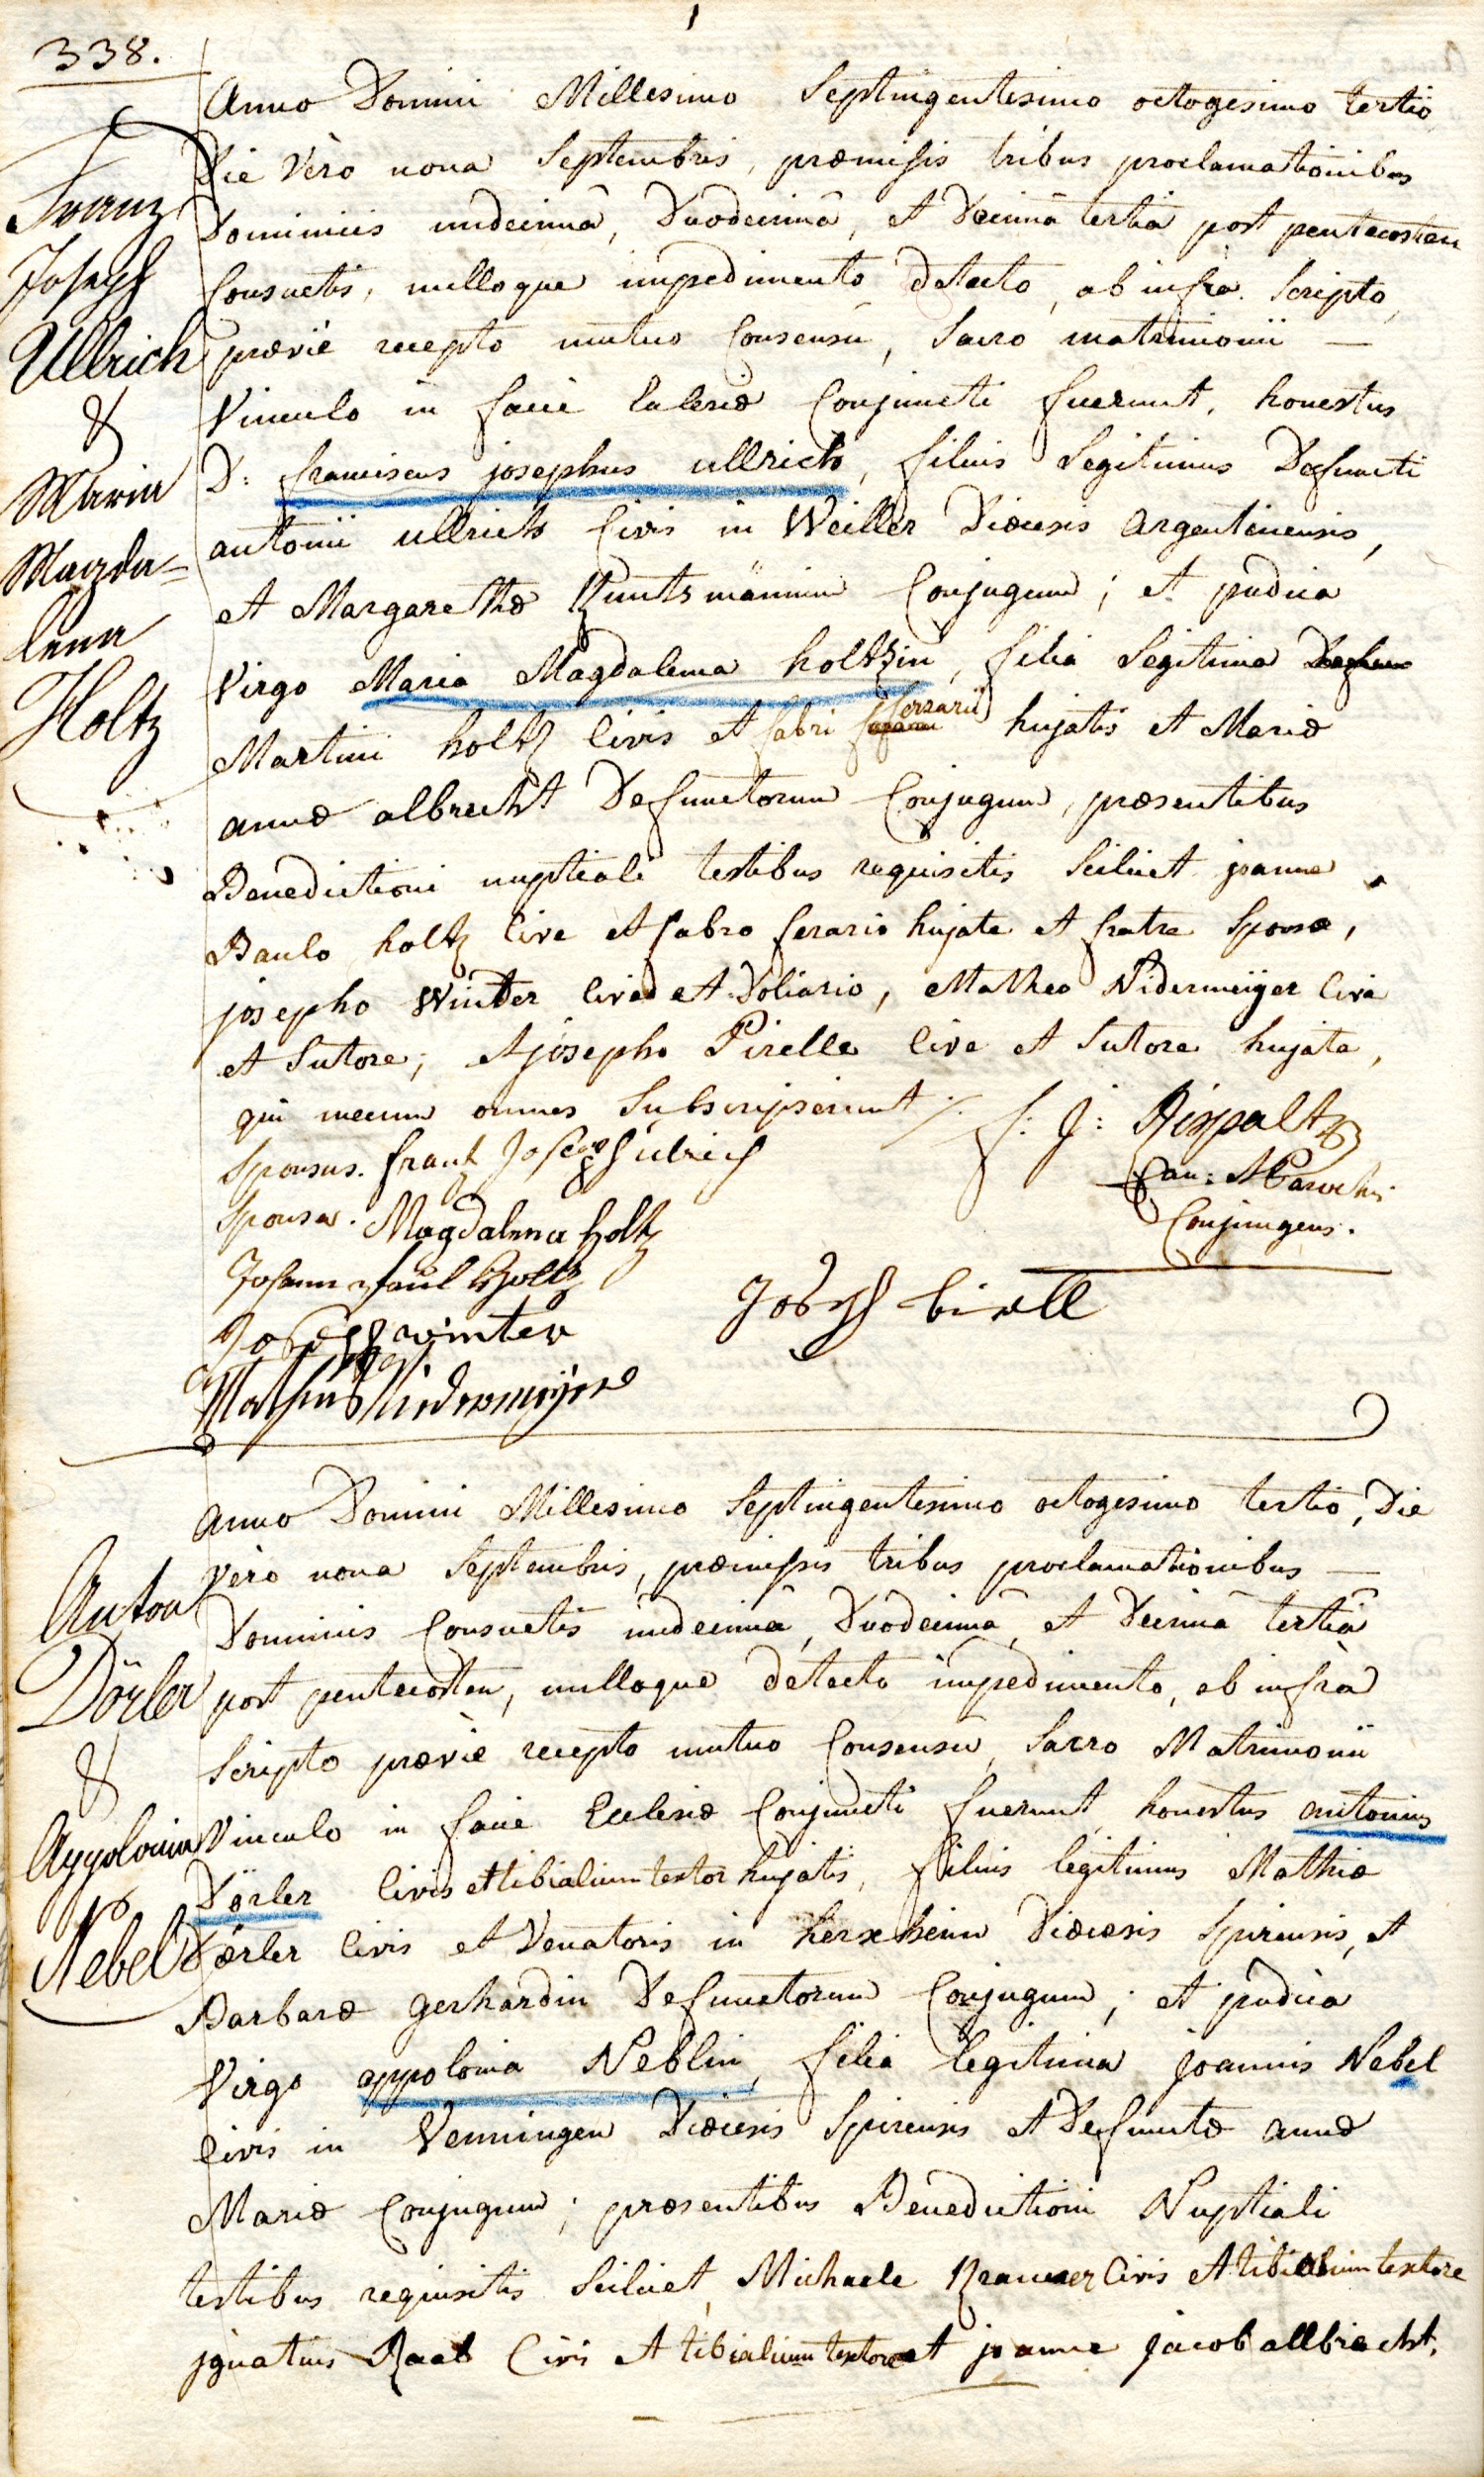 338.
1
Franz
Joseph
Ullrich
&
Maria
Magda=
lena
Holtz
Anno Domini Millesimo Septingentesimo octogesimo tertio
Die Vèro nona Septembris, præmissis tribus proclamationibus
Dominicis undecimâ, Duodecimâ, et Decimâ tertiâ post pentecosten
Consuetis, nulloque impedimento detecto, ab infra Scripto,
prævie recepto mutuo Consensu, Sacro matrimonii —
Vinculo in facie Eclesiæ Conjuncti fuerunt, honestus
D: franciscus josephus ullrich, filius Legitimus Defuncti
antonii ullrich Civis in Weiller Diœcesis argentinensis,
et Margarethæ Kuntsmännin Conjugum; et pudica
Virgo Maria Magdalena holtzin, filia Legitima
Martini holtz Civis et fabri ferrarii hujatis et Mariæ
annæ albrecht Defunctorum Conjugum, præsentibus
Benedictioni nuptiali testibus requisitis Scilicet joanne
Paulo holtz Cive et fabro ferario hujate et fratre Sponsæ,
josepho Winter Cive et Doliario, Matheo Nidermeijer Cive
et Sutore; et josepho Pirelle Cive et Sutore hujate,
qui mecum omnes Subscripserunt ·/·
f: J: Rispalt
Can: et Parochus
Conjungens.
Sponsus. frantz Joseph ulrich
Sponsa. Magdalena holtz
Johann paul Holtz
Joseph winter
Joseph birell
Mathias Nidermeijer
Anton
Dörler
&
Appolonia
Nebel
anno Domini Millesimo Septingentesimo octogesimo tertio, Die
Vèro nona Septembris, præmissis tribus proclamationibus —
Dominicis Consuetis undecimâ, Duodecimâ, et Decimâ tertiâ
post pentecosten, nulloque detecto impedimento, ab infrà
Scripto prævie recepto mutuo Consensu, Sacro Matrimonii
Vinculo in facie Ecclesiæ Conjuncti fuerunt honestus antonius
Dörler Civis et tibialium textor hujatis, filius legitimus Mathiæ
Dörler Civis et Venatoris in herxheim Diœcesis Spirensis, et
Barbaræ gerhardin Defunctorum Conjugum; et pudica
Virgo appolonia Neblin, filia legitima joannis Nebel
Civis in Venningen Diœcesis Spirensis et Defunctæ annæ
Mariæ Conjugum; præsentibus Benedictioni Nuptiali
testibus requisitis Scilicet, Michaele Kramer Civis et tibialium textore
jgnatius Raab Civis et tibialium textore et joanne jacob allbrecht,